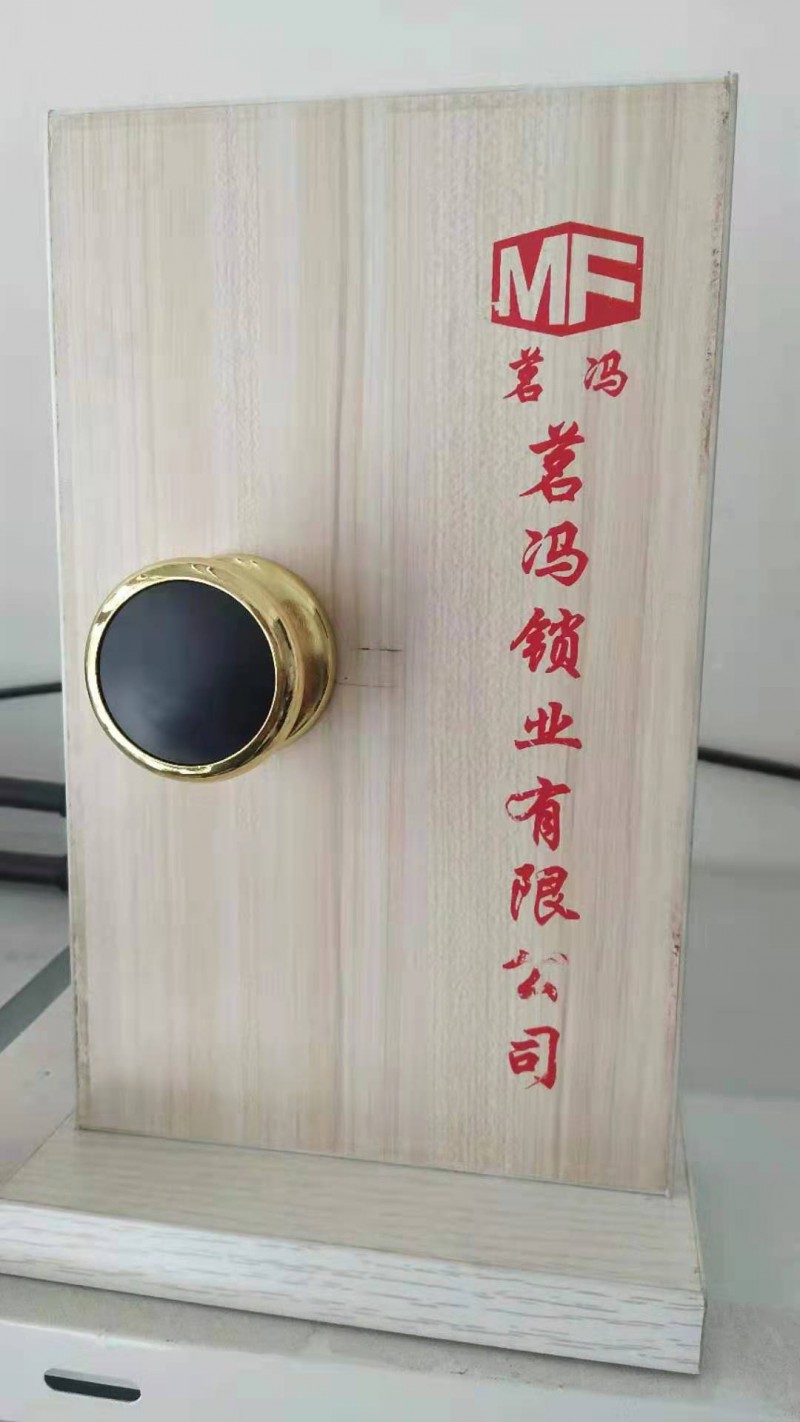 MF
茗冯
茗冯锁业有限公司